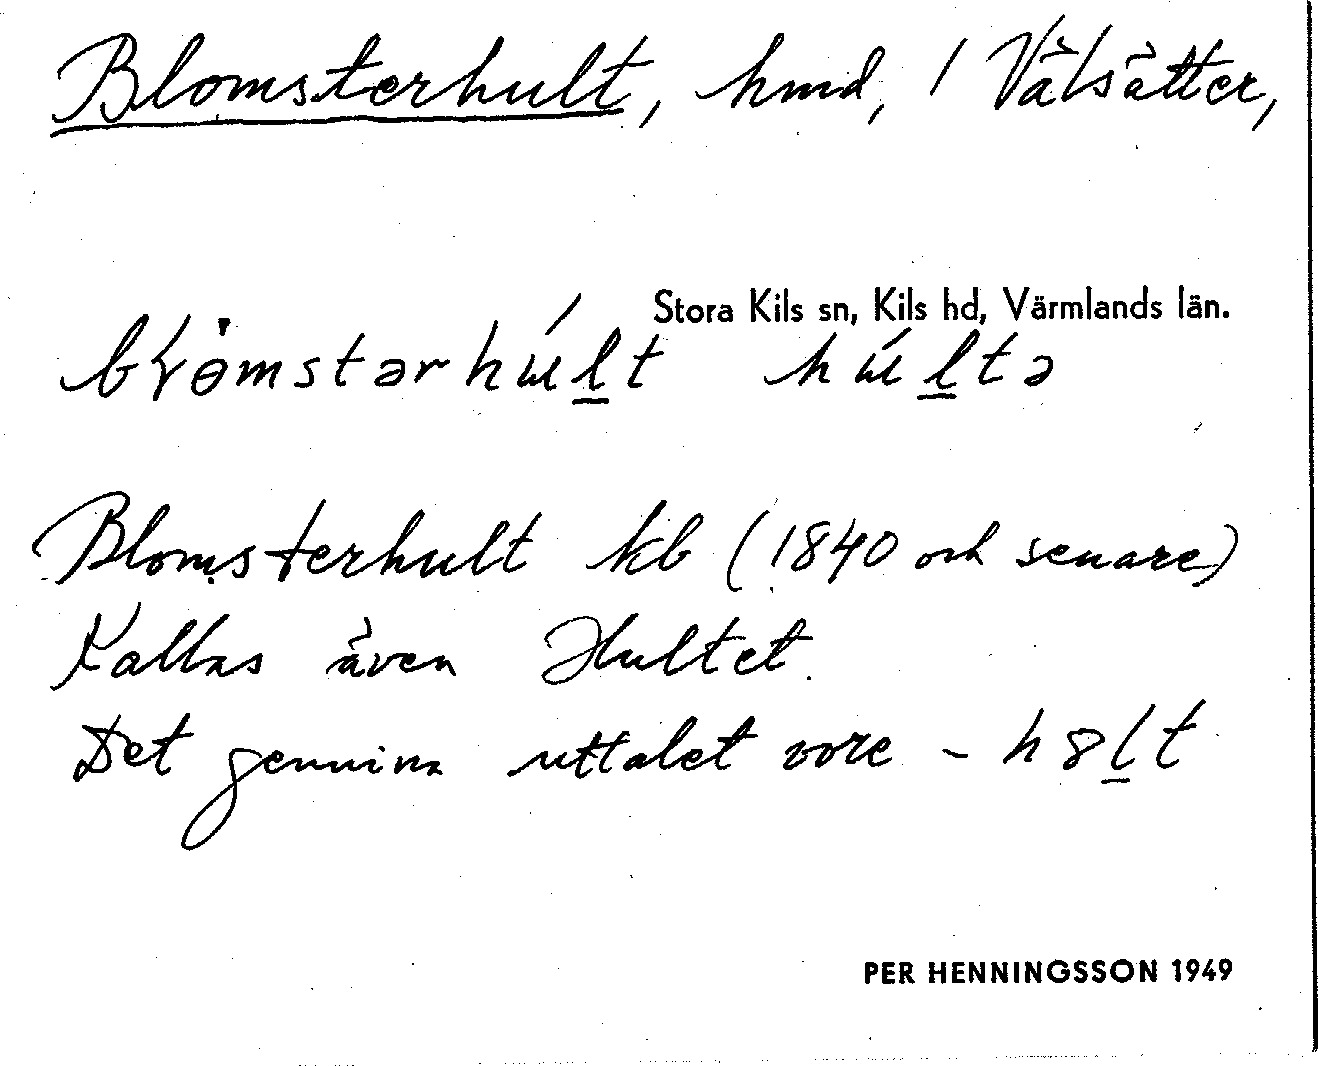 Blomsterhult, hmd, / Vålsätter,
Stora Kils sn, Kils hd, Värmlands län.
Blomsterhult kb (1840 och senare)
Kallas även Hultet.
Det genuina uttalet vore -
PER HENNINGSSON 1949